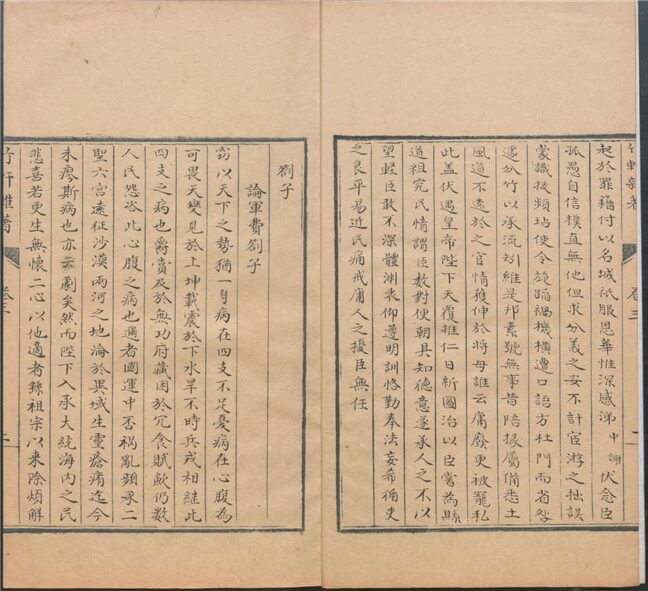 竹軒雜著 卷三
起於罪籍付以名城祗服恩華惟深感涕中謝伏念臣
孤愚自信樸直無他但求分義之安不計宦游之拙誤
蒙識拔頻玷使令旋蹈禍機橫遭口語方杜門而省咎
遂分竹以承流矧維是邦素號無事昔陪掾屬備悉土
風道不遠於之官情獲伸於將母誰云庸廢更被寵私
此蓋伏遇皇帝陛下天覆推仁日新圖治以臣嘗為縣
道粗究民情謂臣數對便朝具知德意遂承人之不以
望輕臣敢不深體淵衷仰遵明訓恪勤奉法妄希循吏
之良平易近民痛戒庸人之擾臣無任
劄子
論軍費劄子
窃以天下之勢猶一身病在四支不足憂病在心腹為
可畏天變見於上坤載震於下水旱不時兵戎相繼此
四支之病也爵賞及於無功府藏困於冗食賦歛仍數
人民怨咨此心腹之病也邇者國運中否禍亂頻承二
聖六宮遠征沙漠兩河之地淪於異域生靈瘡痏迄今
未瘳斯病也亦云劇矣然而陛下入承大統海内之民
悲喜若更生無懷二心以他適者繇祖宗以来除煩解
竹軒雜著 卷三